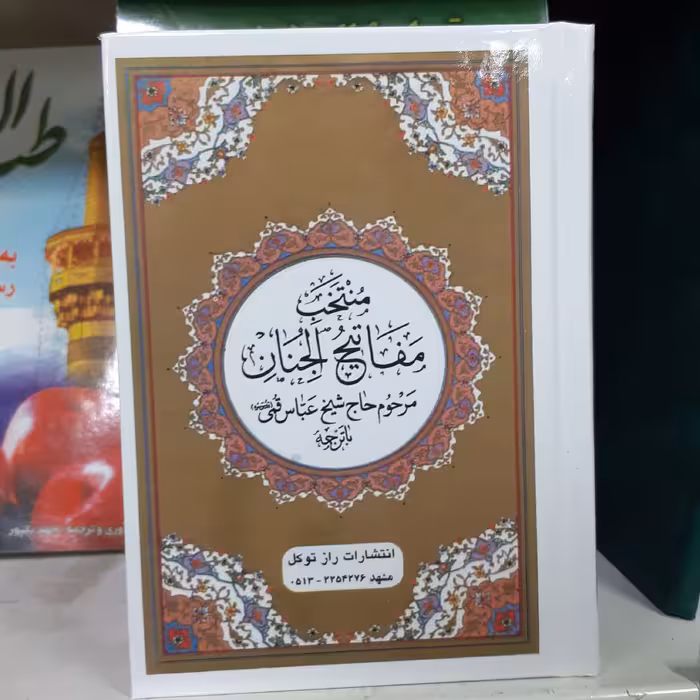 مُنْتَخَبِ
مَفَاتِيحُ الْجِنَانِ
مرحوم حاج شیخ عباس قمی
با ترجمه
انتشارات راز توکل
مشهد ۲۲۵۴۲۷۶ - ۰۵۱۳
به